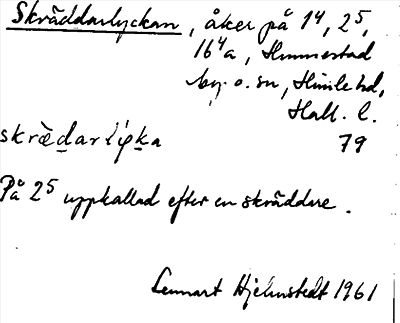 Skräddarlyckan, åker på 1⁴, 2⁵,
16⁴a, Himmestad
by o. sn, Himle hd,
Hall. l.
skrædarlyka 79
På 2⁵ uppkallad efter en skräddare.
Lennart Hjelmstedt 1961